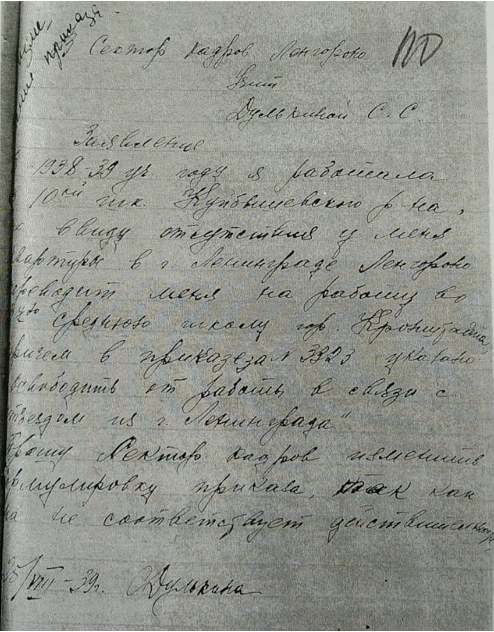 приказ
Сектор кадров Ленгороно
Дулькиной С. С.
Заявление
1938-39 уч. году я работала
10ой шк. Куйбышевского р-на,
ввиду отсутствия у меня
вартиры в г. Ленинграде Ленгороно
реводит меня на работу во
среднюю школу гор. Кронштадта,
ричем в приказе за № 3923 указано
свободить от работы в связи с
ездом из г. Ленинграда"
рошу Сектор кадров изменить
мулировку приказа, так как
на не соответствует действительн
/VIII-39г. Дулькина